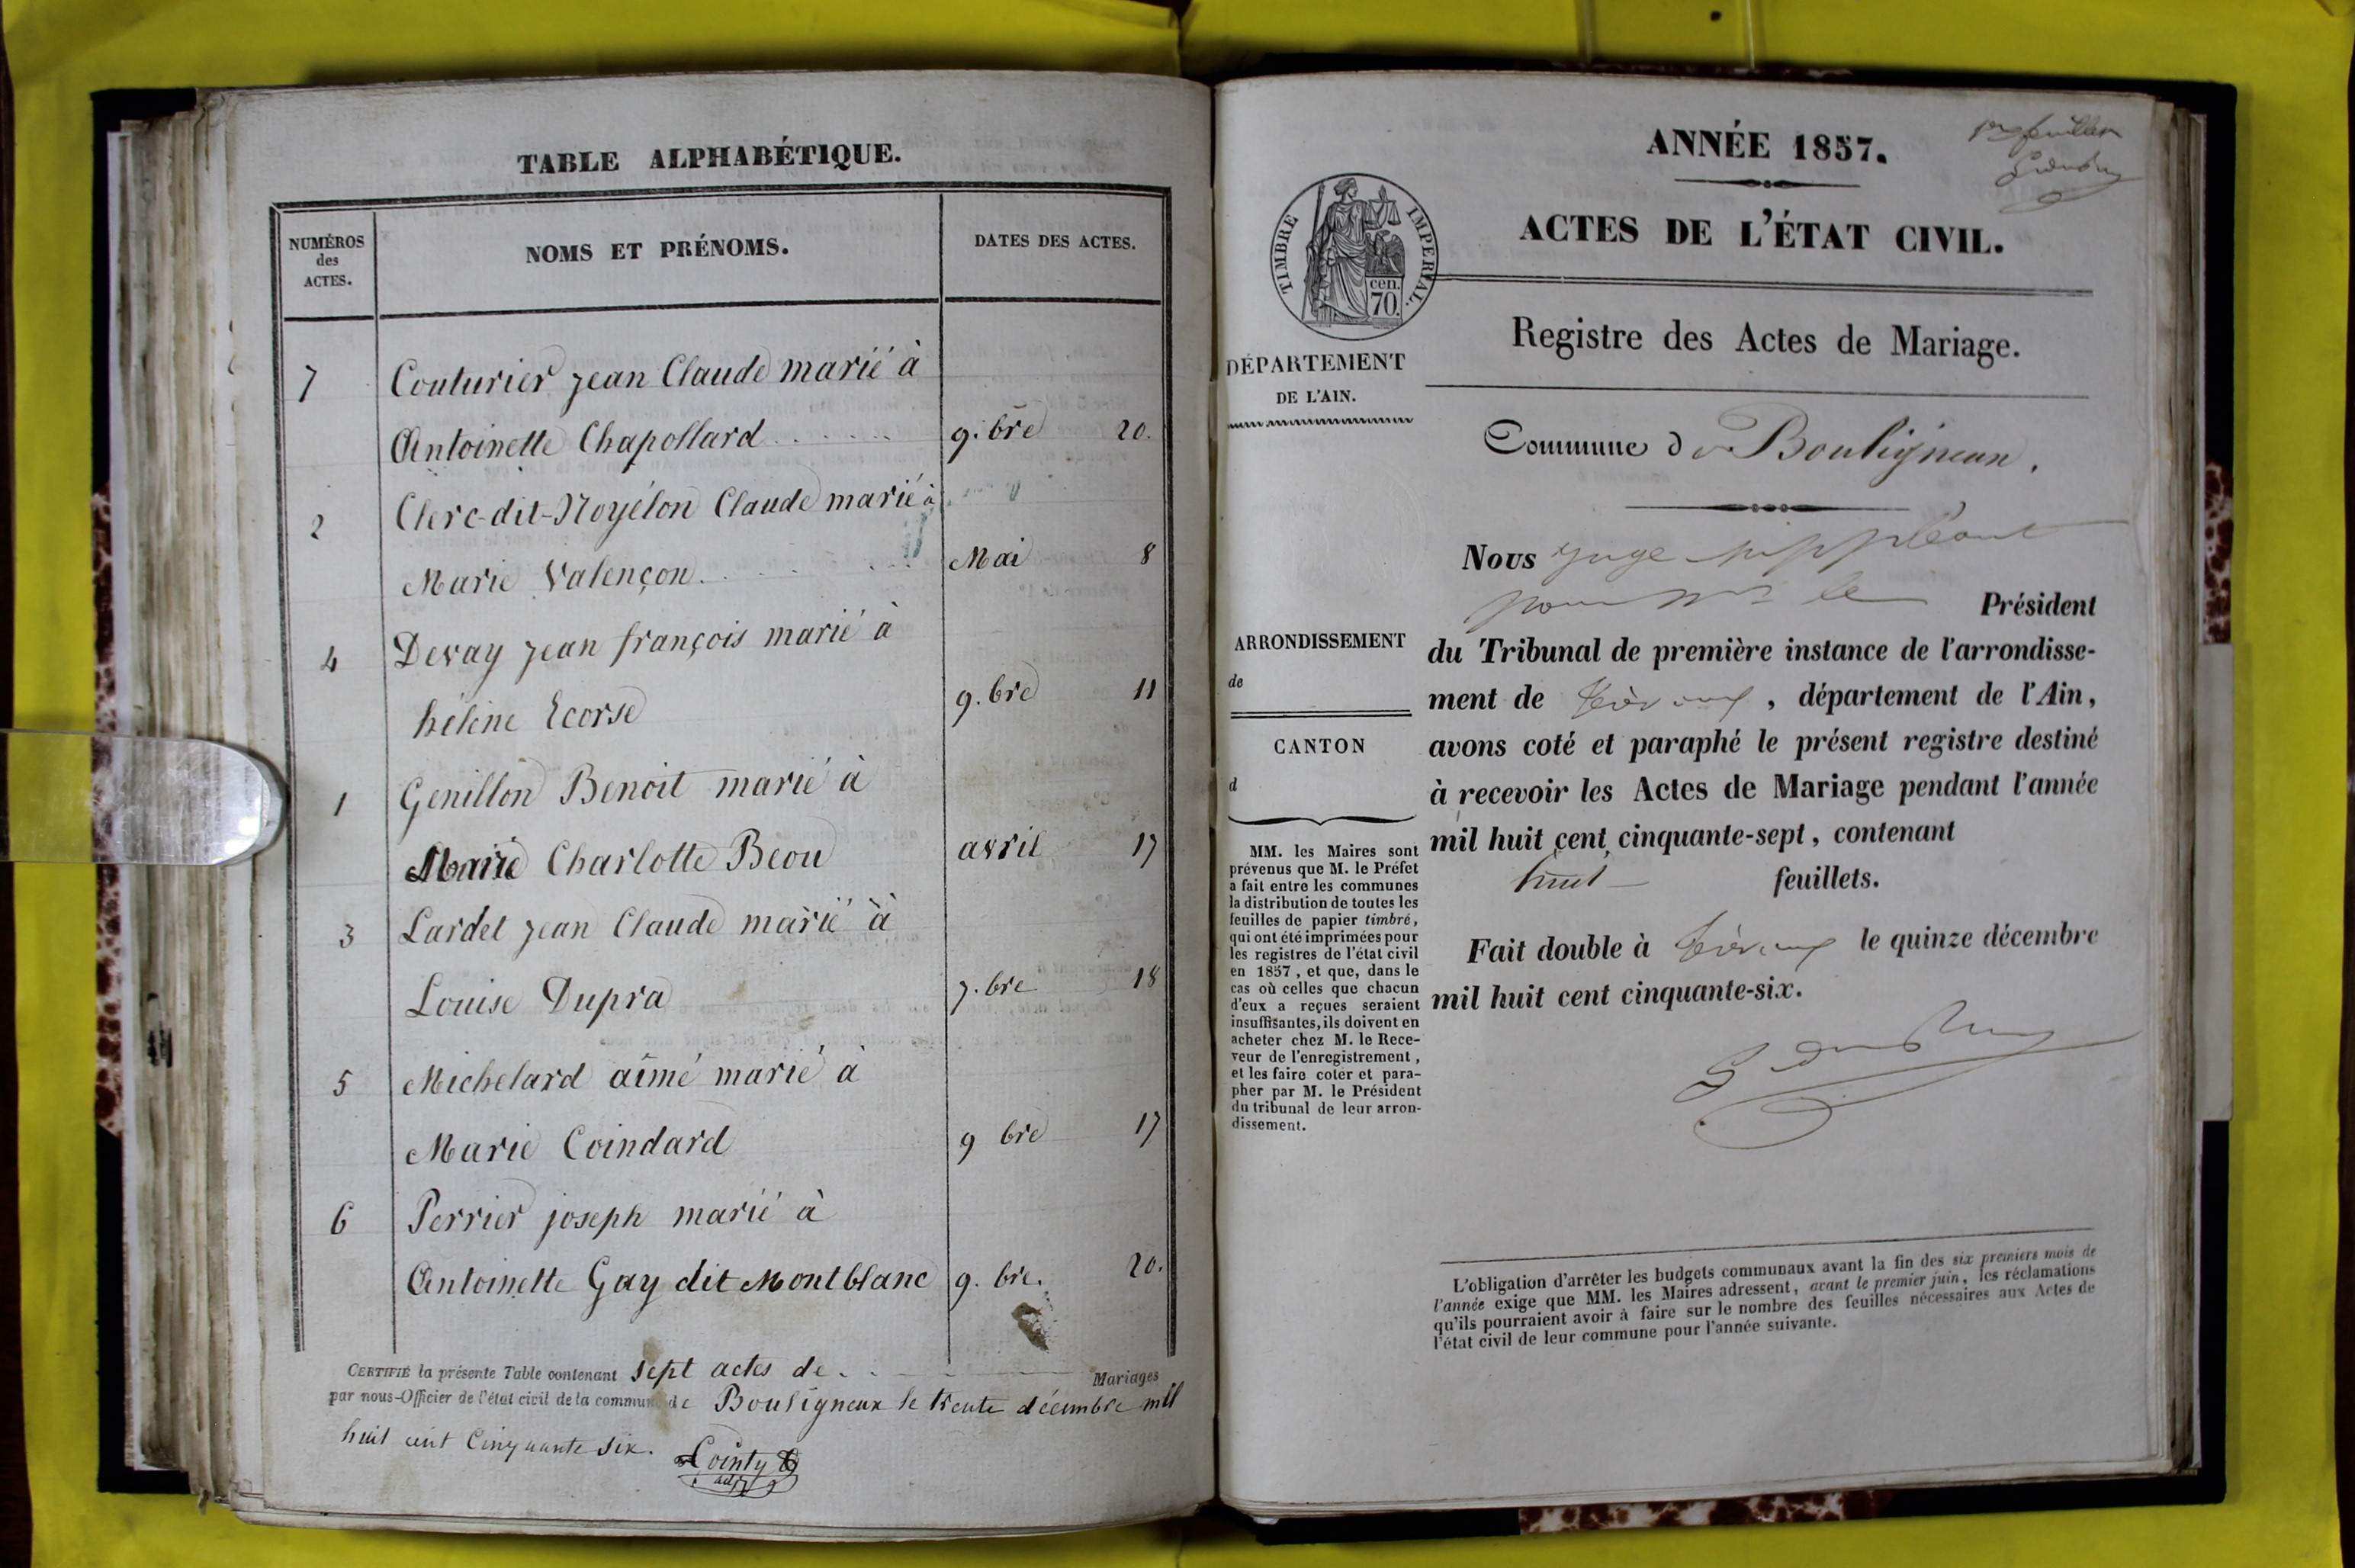 TABLE ALPHABÉTIQUE.
NUMÉROS
des
ACTES.
NOMS ET PRÉNOMS.
DATES DES ACTES.
7 Couturier jean Claude marié à
Antoinette Chapollard 9.bre 20.
2 Clerc-dit-Noyélon Claude marié à
Marie Valençon Mai 8
4 Devay jean françois marié à
hélène Ecorse 9.bre 11
1 Genillon Benoit marié à
Marie Charlotte Beou avril 17
3 Lardet jean Claude marié à
Louise Dupra 7.bre 18
5 Michelard aimé marié à
Marie Coindard 9 bre 17
6 Perrier joseph marié à
Antoinette Gay dit Montblanc 9. bre. 20.
CERTIFIÉ la présente Table contenant sept actes de Mariages
par nous-Officier de l'état civil de la commune de Bouligneux le trente décembre mil
huit cent Cinquante six.
Cointy
adj
1er feuillet
ANNÉE 1857.
ACTES DE L'ÉTAT CIVIL.
TIMBRE IMPERIAL.
cen.
70.
Registre des Actes de Mariage.
DÉPARTEMENT
DE L'AIN.
Commune de Bouligneux.
Nous juge suppléant
pour Mr le Président
du Tribunal de première instance de l'arrondisse-
ment de Trévoux, département de l'Ain,
avons coté et paraphé le présent registre destiné
à recevoir les Actes de Mariage pendant l'année
mil huit cent cinquante-sept, contenant
huit feuillets.
Fait double à Trévoux le quinze décembre
mil huit cent cinquante-six.
ARRONDISSEMENT
de
CANTON
d
MM. les Maires sont
prévenus que M. le Préfet
a fait entre les communes
la distribution de toutes les
feuilles de papier timbré,
qui ont été imprimées pour
les registres de l'état civil
en 1857, et que, dans le
cas où celles que chacun
d'eux a reçues seraient
insuffisantes, ils doivent en
acheter chez M. le Rece-
veur de l'enregistrement,
et les faire coter et para-
pher par M. le Président
du tribunal de leur arron-
dissement.
L'obligation d'arrêter les budgets communaux avant la fin des six premiers mois de
l'année exige que MM. les Maires adressent, avant le premier juin, les réclamations
qu'ils pourraient avoir à faire sur le nombre des feuilles nécessaires aux Actes de
l'état civil de leur commune pour l'année suivante.